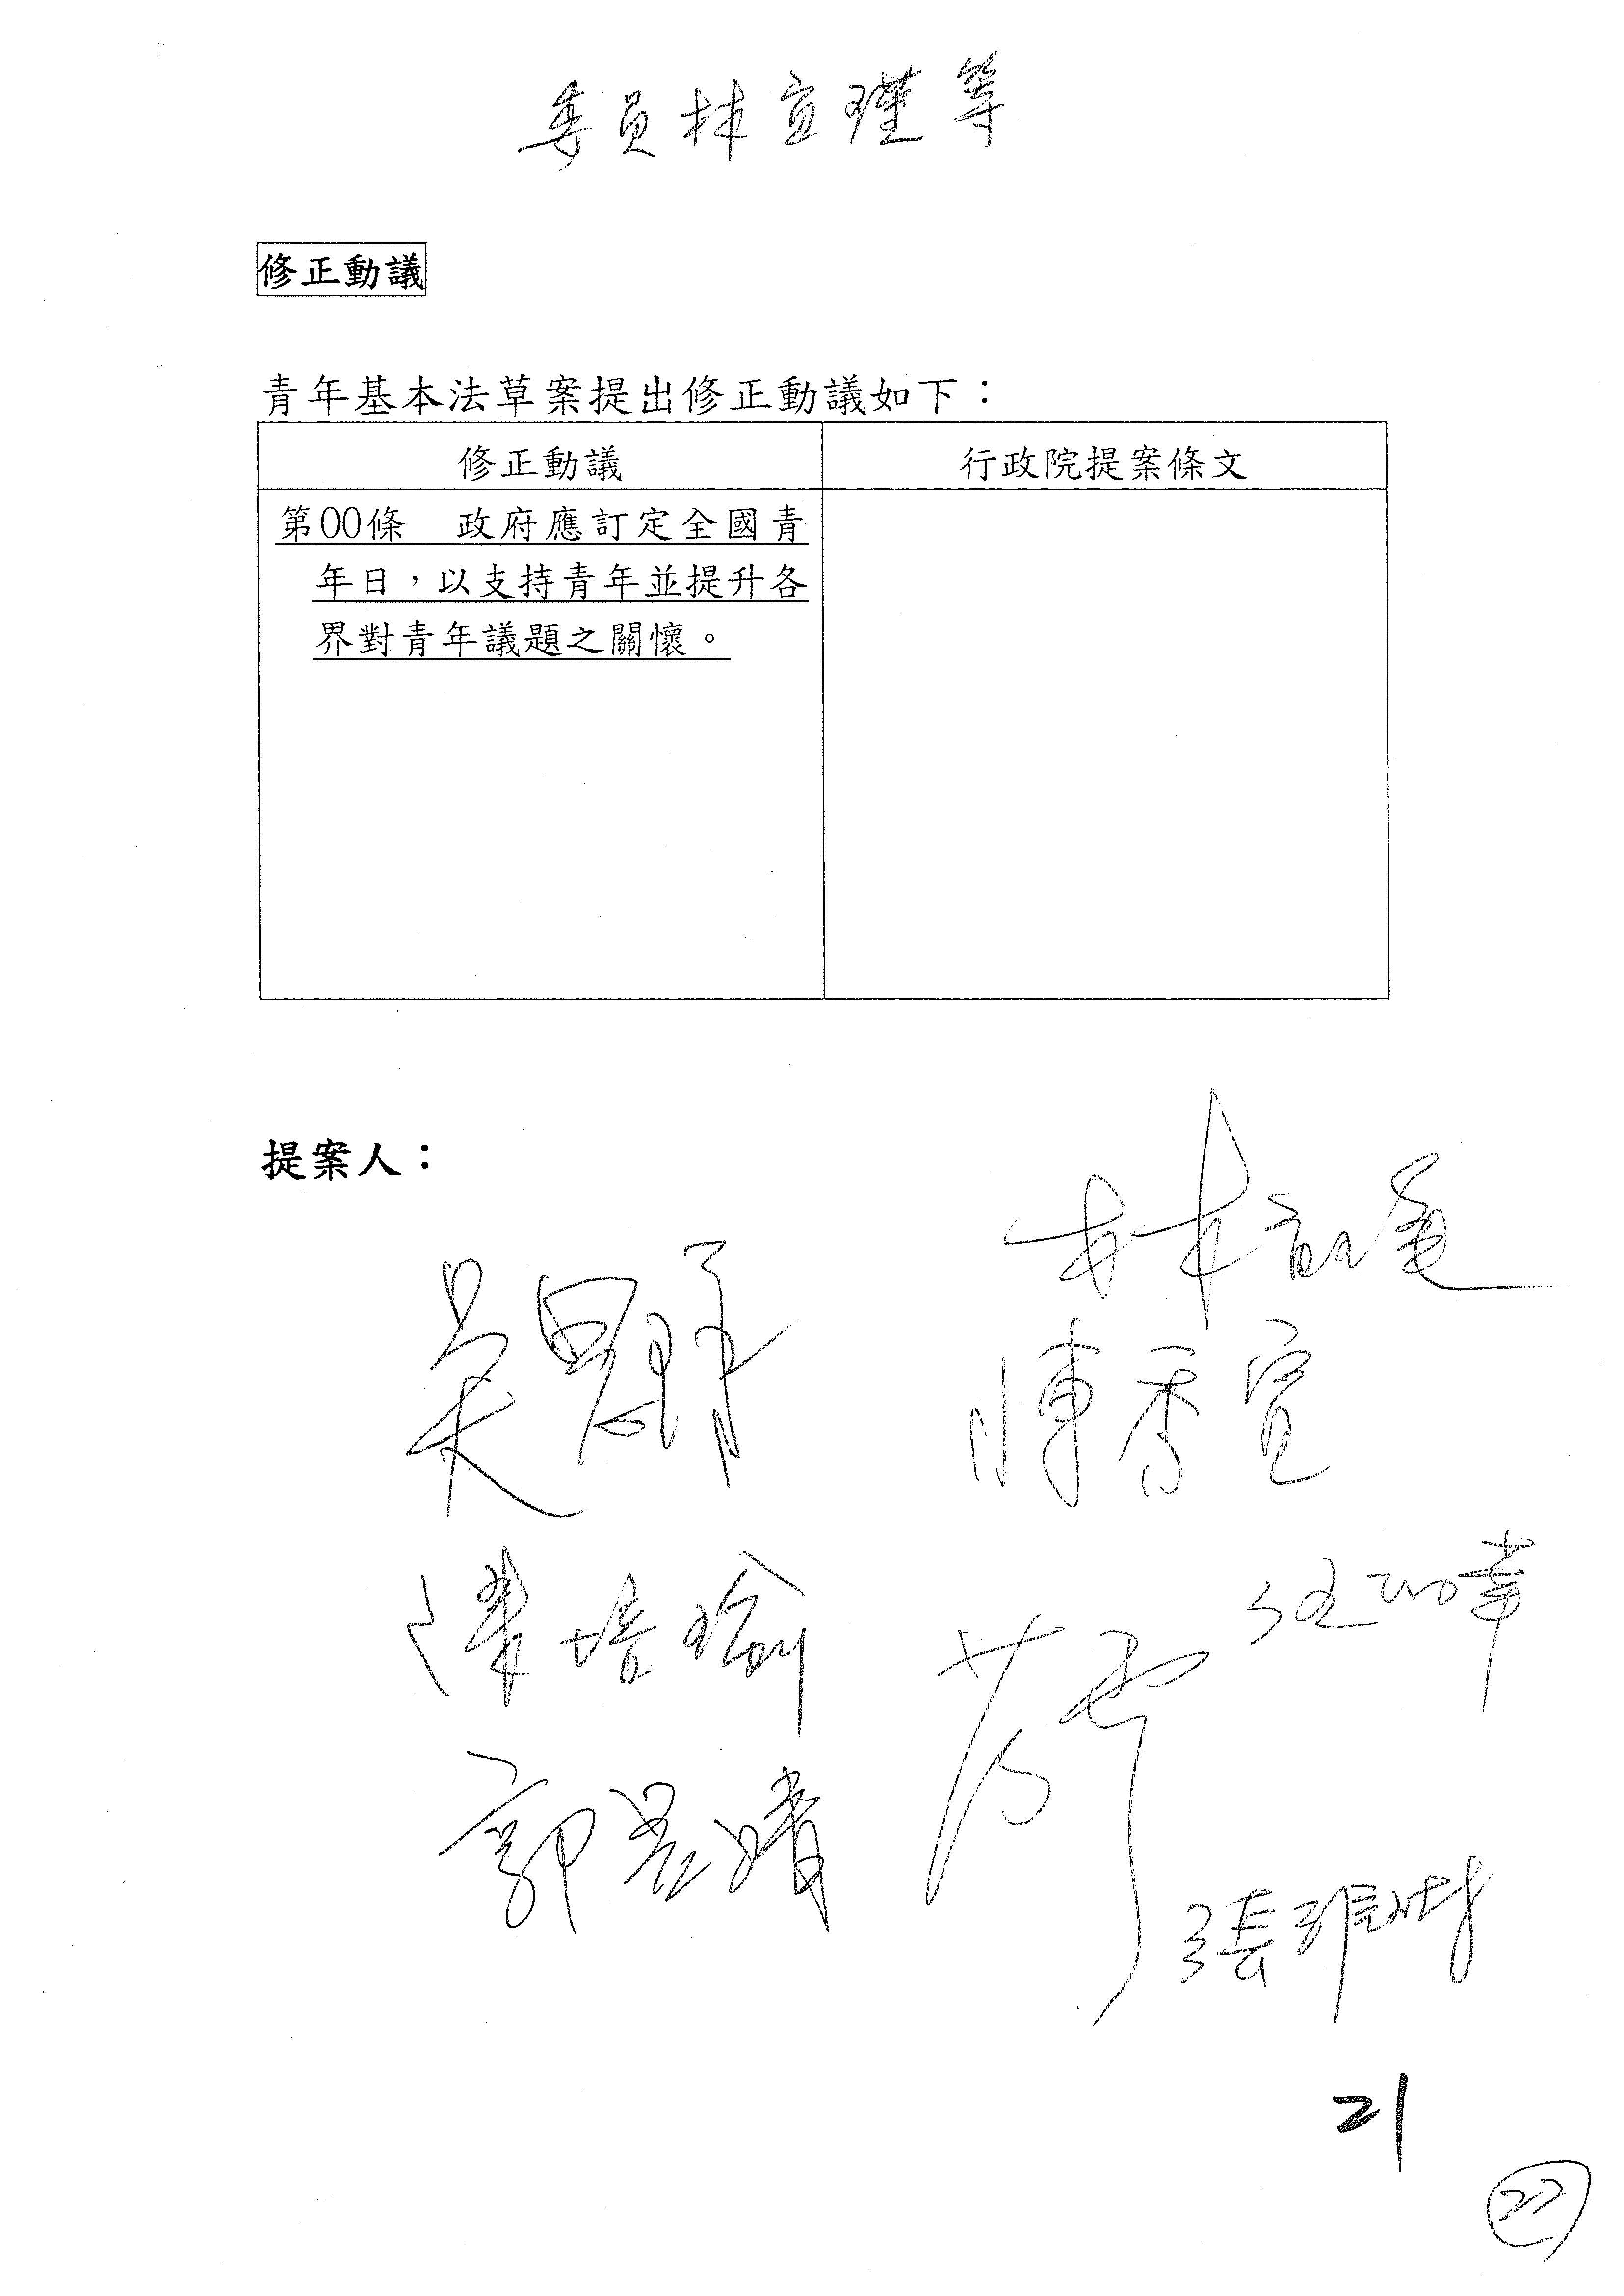 委員林宜瑾等
修正動議
青年基本法草案提出修正動議如下：
修正動議
行政院提案條文
第00條　政府應訂定全國青
年日，以支持青年並提升各
界對青年議題之關懷。
提案人：
林宜瑾
吳思瑤
陳秀寳
陳培瑜
范雲
郭昱晴
21
22